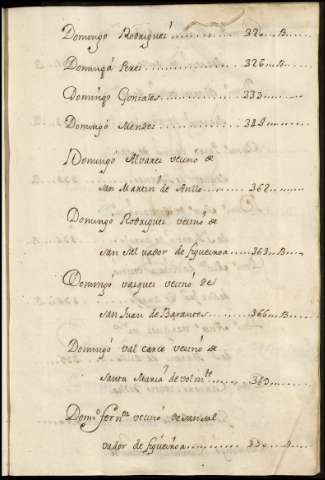 Domingo Rodriguez ........ 320 .. B ...
Dominga Perez ........ 326 .. B ...
Domingo Gonzales ........ 333 ...
Domingo Mendez ........ 348 ...
Domingo Alvarez vecino de
san Martin de ........ 362 ...
Domingo Rodriguez vecino de
san Sal vador de figueiroa ... 363 .. B ...
Domingo vazquez vecino de
san Juan de Barantes ........ 366 .. B ...
Domingo val carze vecino de
santa Maria de vol mte ..... 389 ...
Domo fernz vecino de san sal
vador de figueiroa ........ 334 .. B ...